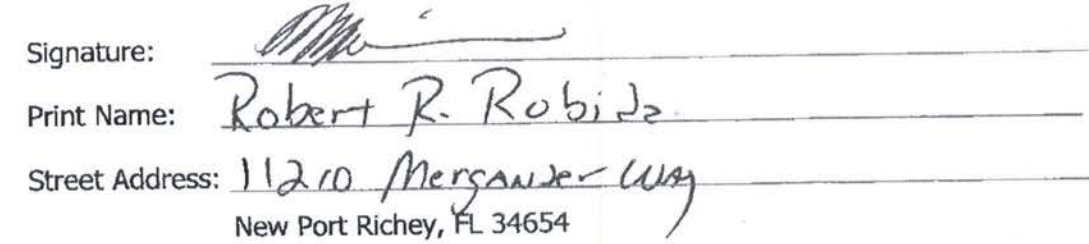 Signature:
Print Name: Robert R. Robida
Street Address: 11210 Merganser Way
New Port Richey, FL 34654